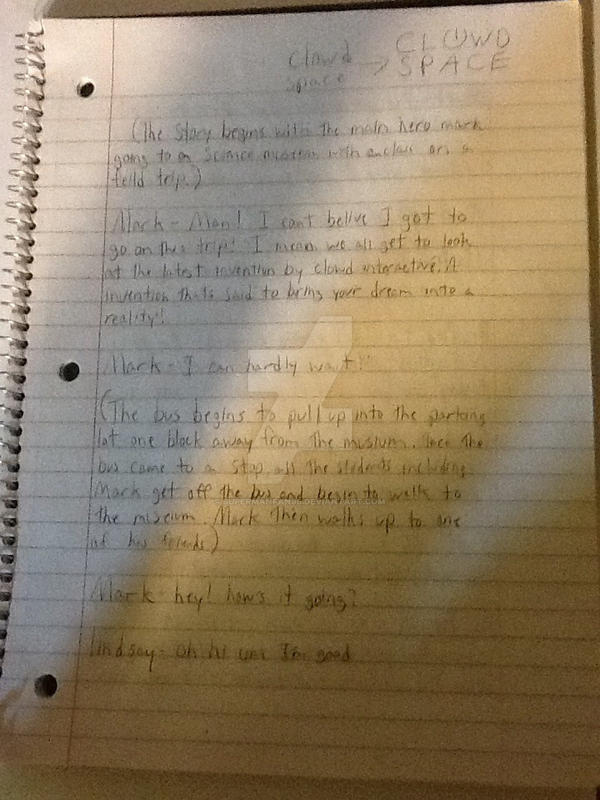 Clowd → CLOWD
Space SPACE
(The Story begins with the main hero mark
going to a Science museum with a class on a
feild trip.)
Mark - Man! I can't belive I got to
go on this trip! I mean we all get to look
at the latest invention by clowd interactive! A
invention thats said to bring your dream into a
reality!
Mark - I can hardly wait!
(The bus begins to pull up into the parking
lot one block away from the musium. Once the
bus came to a stop, all the students including
Mark get off the bus and begin to walk to
the museium. Mark then walks up to one
of his friends)
Mark - hey! how's it going?
lindsay - oh hi I'm good